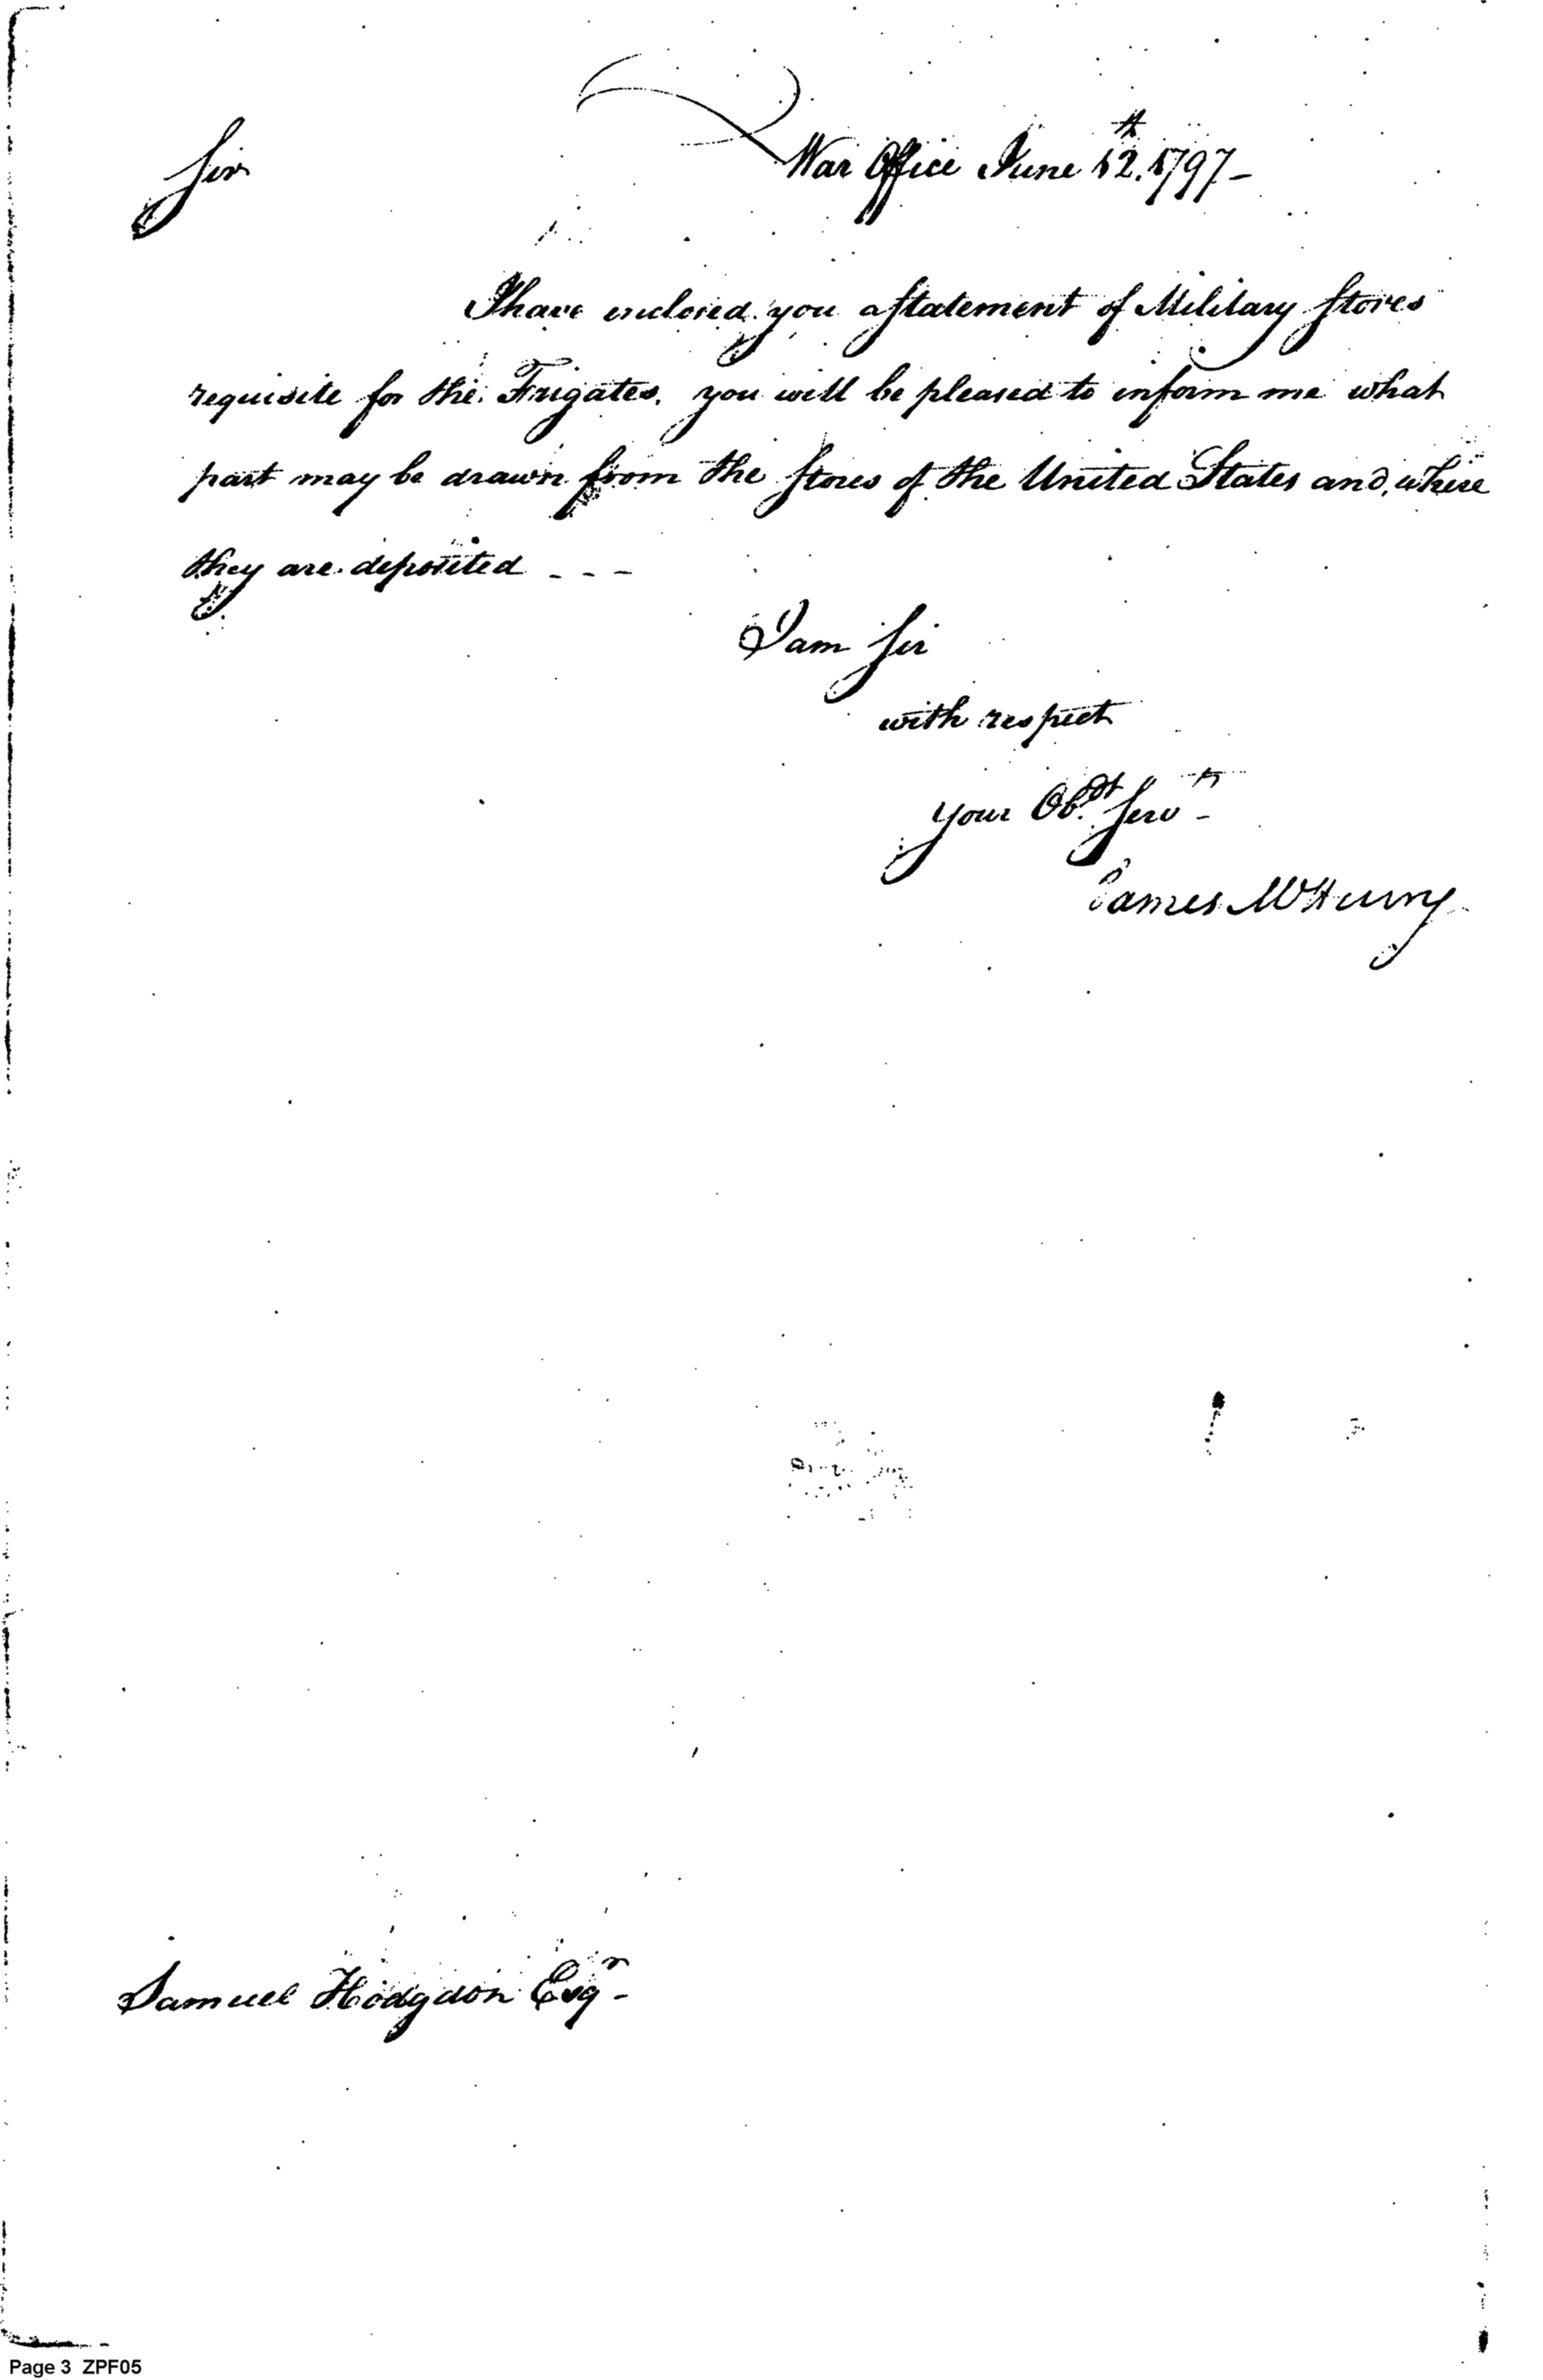 War Office June 12th. 1797-
Sir
I have enclosed you a Statement of Military Stores
requisite for the Frigates. you will be pleased to inform me what
part may be drawn from the Stores of the United States and, where
they are deposited - - -
I am Sir
with respect
your Obdt. Servt
James McHenry
Samuel Hodgdon Esqr-
Page 3 ZPF05